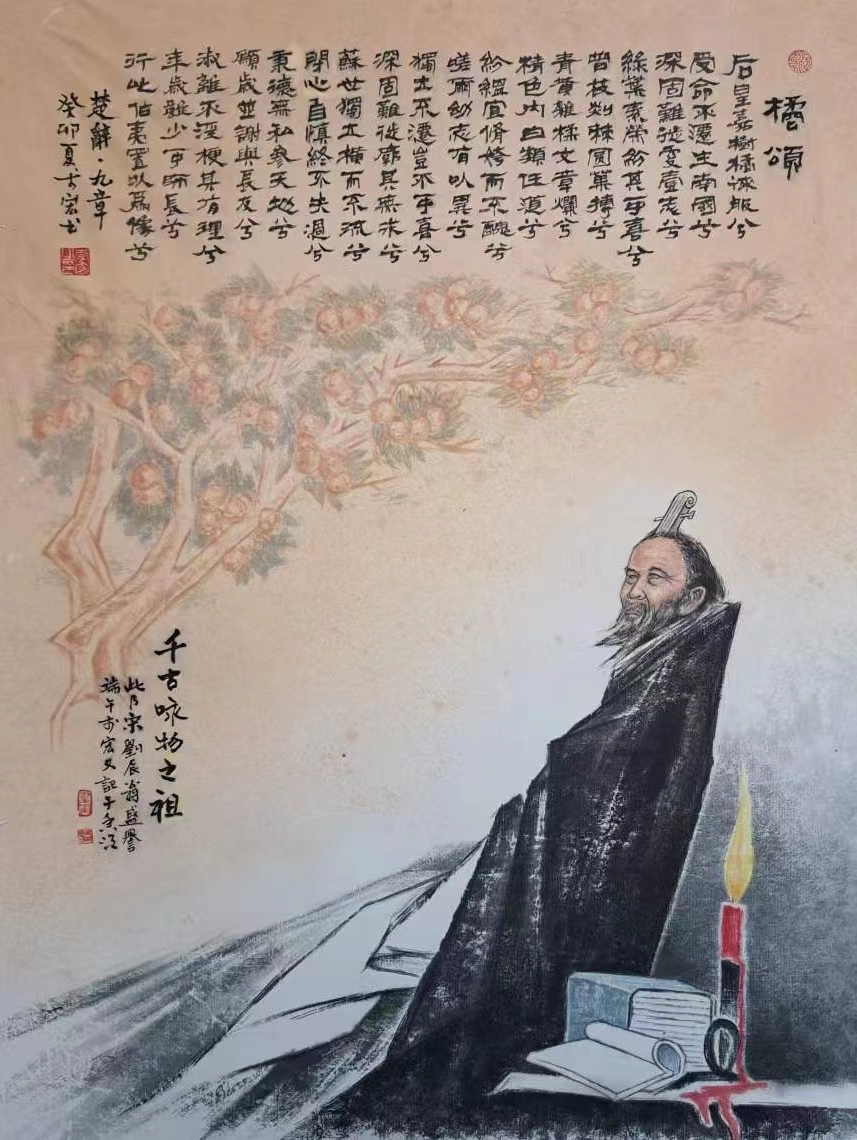 橘頌
后皇嘉樹橘徠服兮
受命不遷生南國兮
深固難徙更壹志兮
綠葉素榮紛其可喜兮
曾枝剡棘圓菓摶兮
青黃雜糅文章爛兮
精色內白類任道兮
紛緼宜脩姱而不醜兮
嗟爾幼志有以異兮
獨立不遷豈不可喜兮
深固難徙廓其無求兮
蘇世獨立橫而不流兮
閉心自慎終不失過兮
秉德無私參天地兮
願歲並謝與長友兮
淑離不淫梗其有理兮
年歲雖少可師長兮
行比伯夷置以爲像兮
楚辭·九章
癸卯夏方宏书
千古咏物之祖
此乃宋劉辰翁盛譽
端午前宏又記于